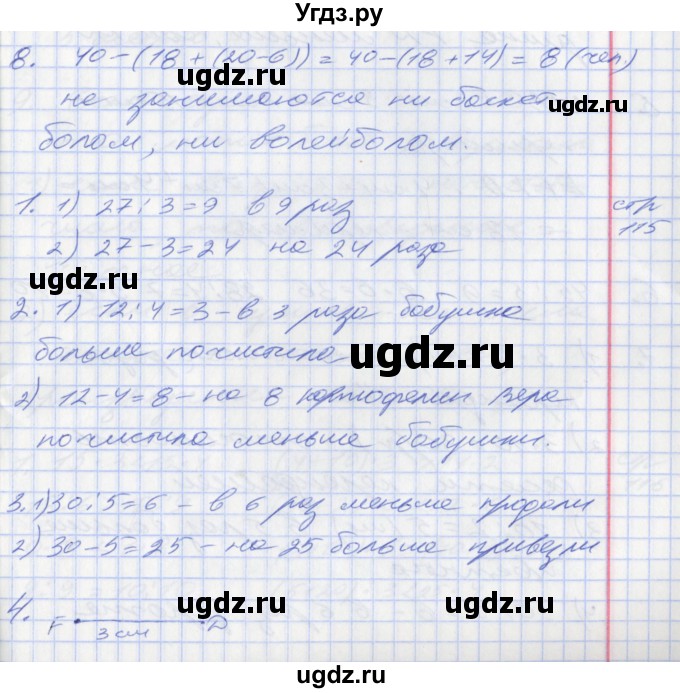 Угдз.ру
8. 40-(18+(20-6))=40-(18+14)=8 (чел.)
не занимаются ни баскет
болом, ни волейболом.
1. 1) 27:3=9 в 9 раз
стр
115
2) 27-3=24 на 24 раза
2. 1) 12:4=3-в 3 раза бабушка
больше почистила
2) 12-4=8-на 8 картофелин Вера
почистила меньше бабушки.
3. 1) 30:5=6 - в 6 раз меньше продали
2) 30-5=25-на 25 больше привезли
4. F D
3 см
ugdz.ru
ugdz.ru
ugdz.ru
ugdz.ru
ugdz.ru
ugdz.ru
ugdz.ru
ugdz.ru
ugdz.ru
ugdz.ru